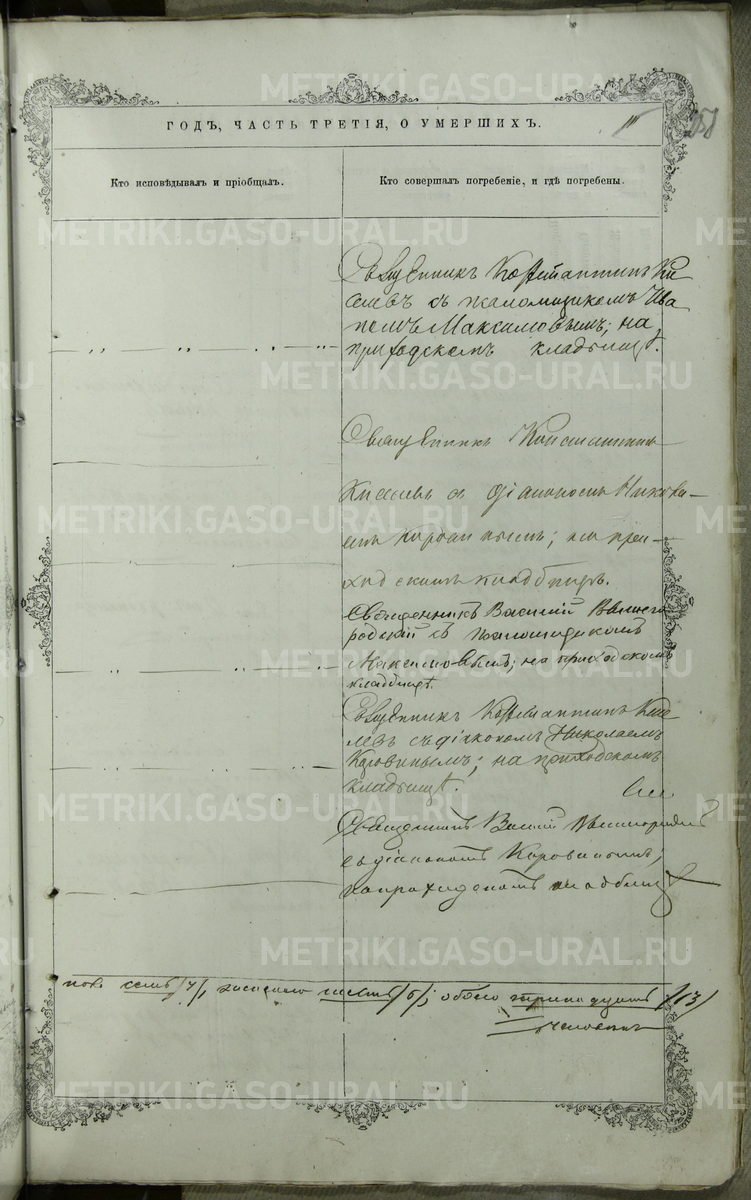 ГОДЪ, ЧАСТЬ ТРЕТІЯ, О УМЕРШИХЪ.
Кто исповѣдывалъ и пріобщалъ.
Кто совершалъ погребеніе, и гдѣ погребены.
Священникъ Константинъ Ки
селевъ съ псаломщикомъ Ива
номъ Максимовымъ; на
приходскомъ кладбищѣ.
Священникъ Константинъ
Киселевъ съ діакономъ Никола–
емъ Коровинымъ; на при–
ходскомъ кладбищѣ.
Священникъ Василій
съ псаломщикомъ
Максимовымъ; на приходскомъ
кладбищѣ.
Священникъ Константинъ Кисе
левъ съ діакономъ Николаемъ
Коровинымъ; на приходскомъ
кладбищѣ.
Священникъ Василій
съ діакономъ Коровинымъ;
на приходскомъ кладбищѣ
семь /7/, женскаго шесть /6/; обоего тринадцать /13/
человѣкъ
METRIKI.GASO-URAL.RU